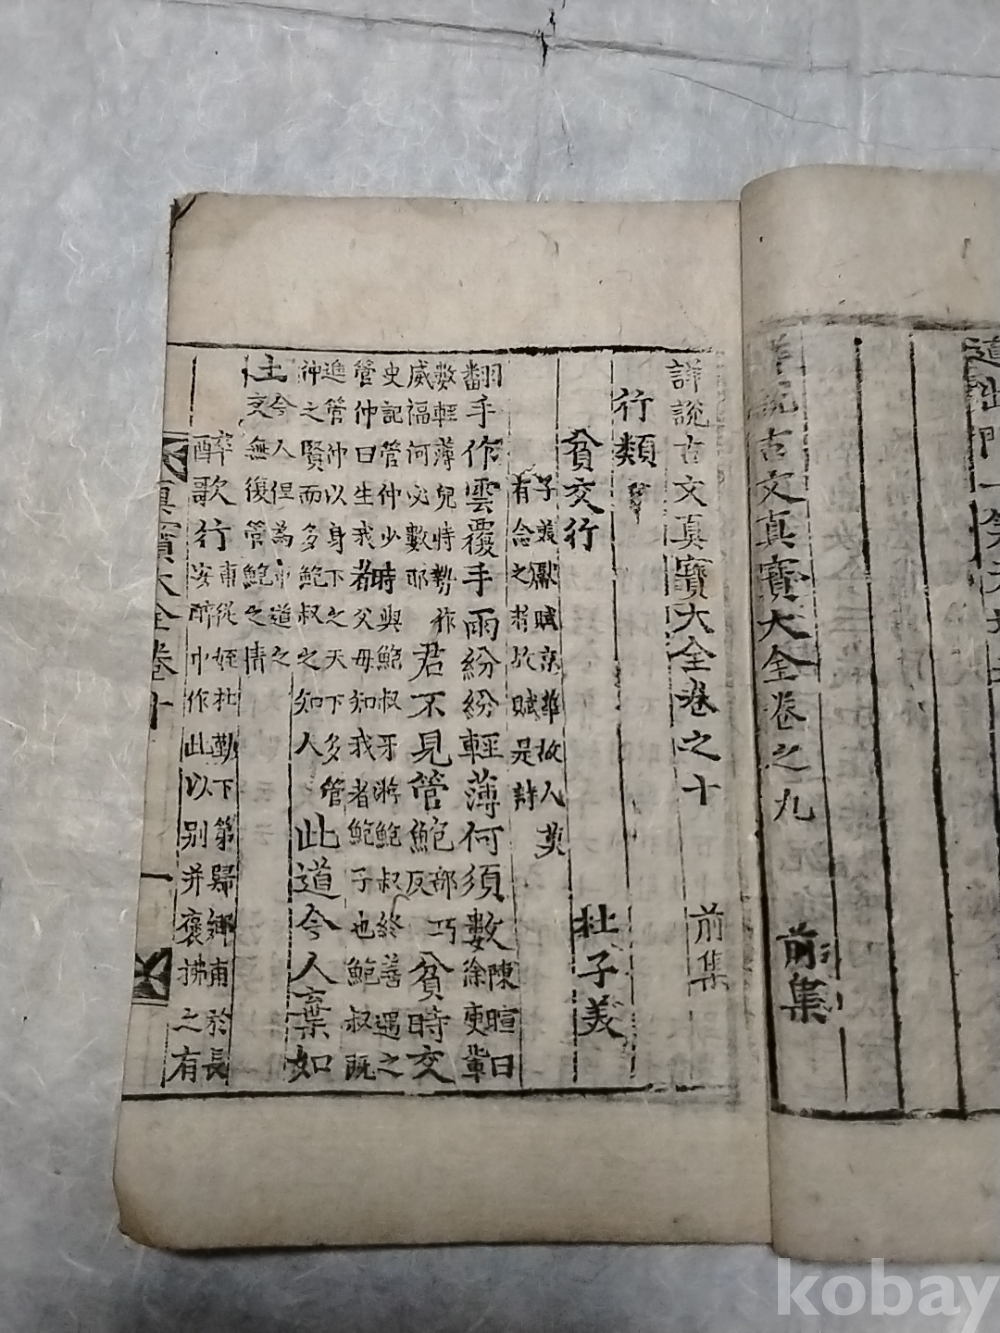 道出門一笑天地
詳說古文真寶大全卷之九 前集
詳說古文真寶大全卷之十 前集
行類
貧交行 杜子美
子美獻賦京華故人莫
有念之者故賦是詩
翻手作雲覆手雨紛紛輕薄何須數陳暄曰徐吏輩
數輕薄兒恃勢作
威福何必數耶君不見管鮑部巧反貧時交
史記管仲少時與鮑叔牙游鮑叔終善遇之
管仲曰生我者父母知我者鮑子也鮑叔既
進管仲以身下之天下多管
仲之賢而多鮑叔之知人此道今人棄如
土今人但為市道之
交無復管鮑之情
醉歌行甫從姪杜勤下第歸鄉甫於長
安醉中作此以別并褒拂之有
真寶大全卷十 一
kobay